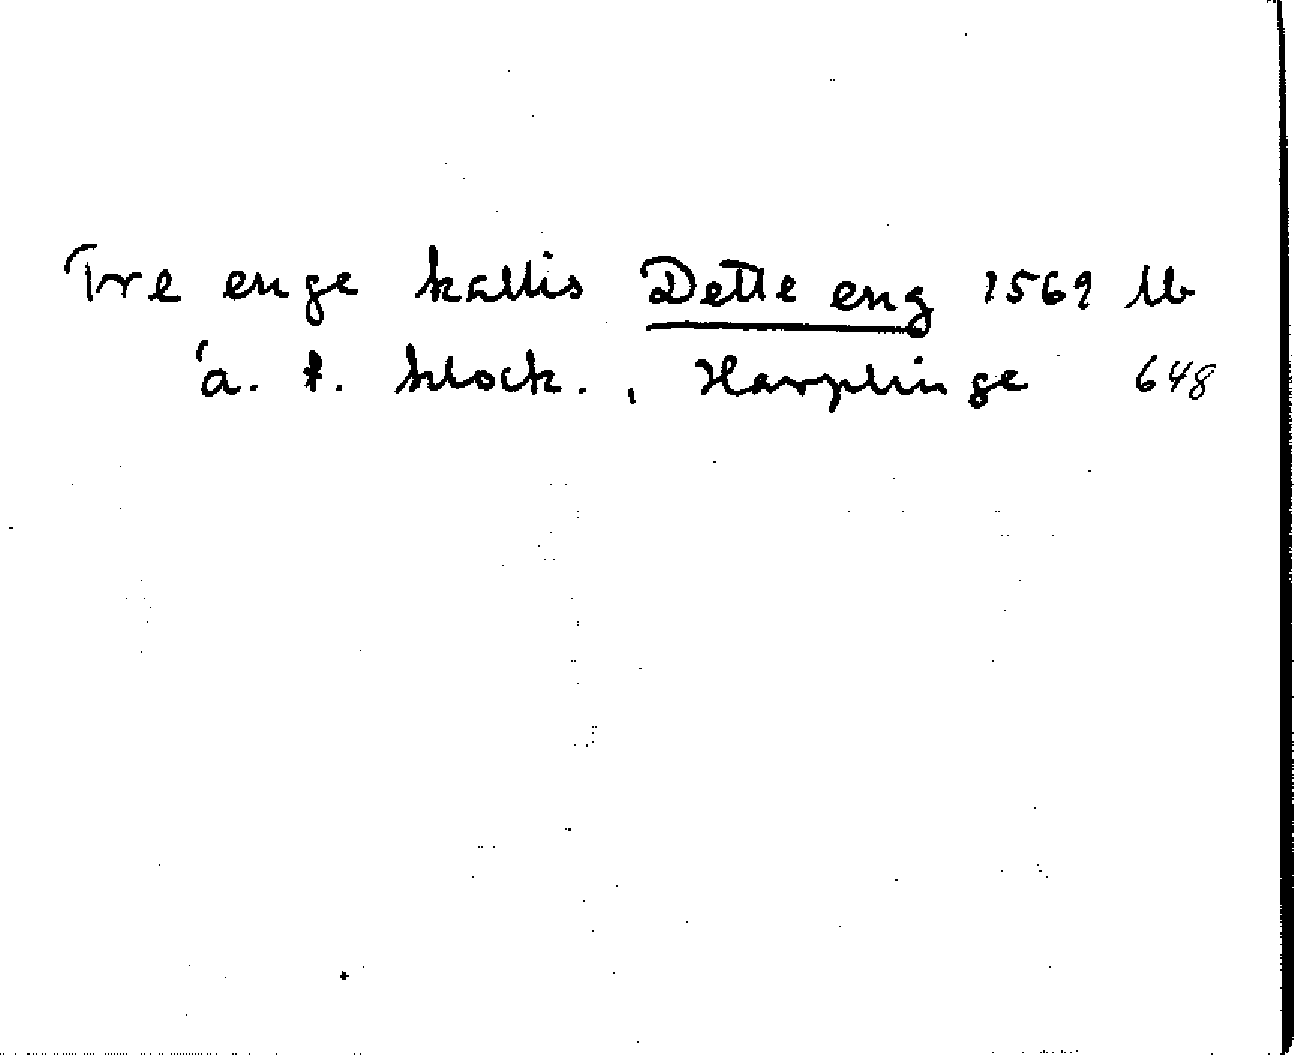 Tre enge kallis Dette eng 1569 Lb
á. t. klock., Harplinge 648